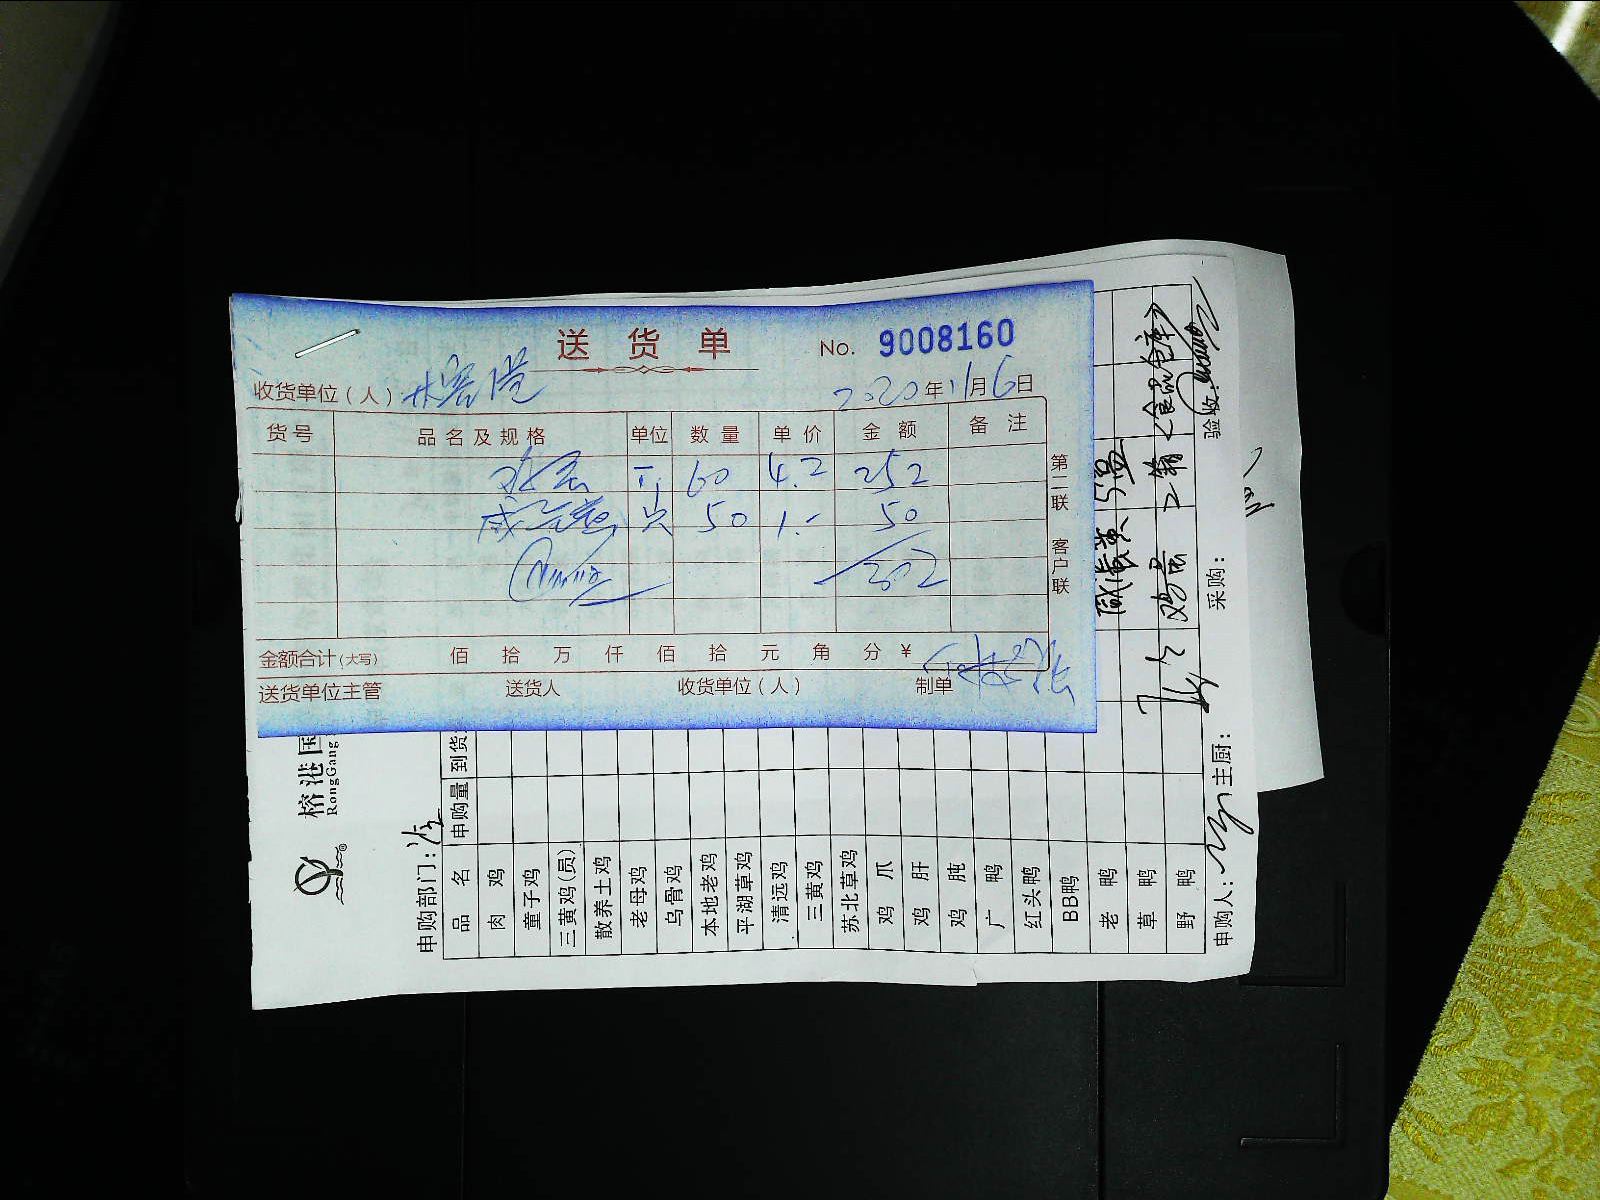 送货单
No. 9008160
收货单位（人） 榕港
2020年11月6日
货号 品名及规格 单位 数量 单价 金额 备注
鸡蛋 斤 60 4.2 252
咸蛋黄 只 50 1.- 50
302
第二联 客户联
金额合计(大写) 佰 拾 万 仟 佰 拾 元 角 分 ¥
送货单位主管 送货人 收货单位（人） 制单
榕港国
RongGang
申购部门：
品名 申购量 到货
肉鸡
童子鸡
三黄鸡(员)
散养土鸡
老母鸡
乌骨鸡
本地老鸡
平湖草鸡
清远鸡
三黄鸡
苏北草鸡
鸡爪
鸡肝
鸡肫
广鸭
红头鸭
BB鸭
老鸭
草鸭
野鸭
咸蛋黄 5盒
鸡蛋 2箱 <食品仓库>
申购人： 主厨： 采购： 验收：